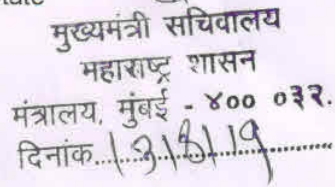 मुख्यमंत्री सचिवालय
महाराष्ट्र शासन
मंत्रालय, मुंबई - ४०० ०३२.
दिनांक.